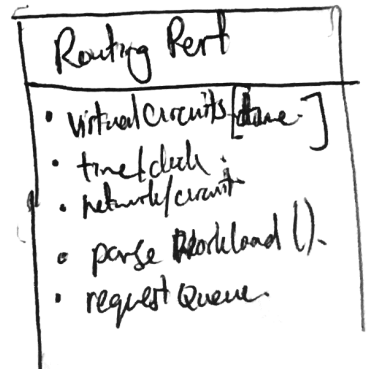 Routing Perf
• virtualCircuits [time.]
• time/clock.
• network/circuit
• parse Workload ().
• requestQueue.